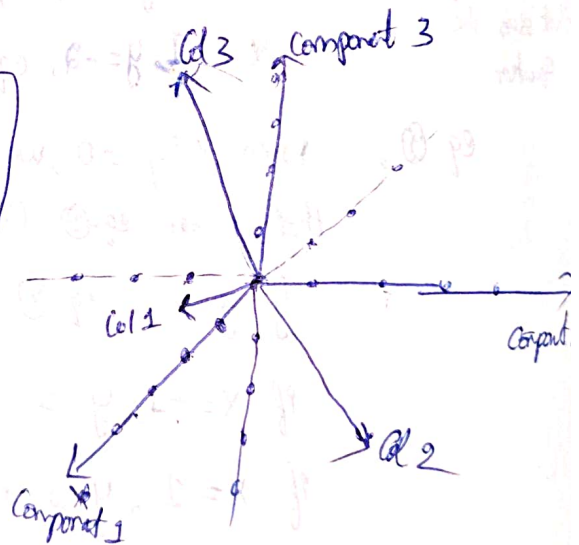 Col 3
Componet 3
Col 1
Compont
Col 2
Componet 1